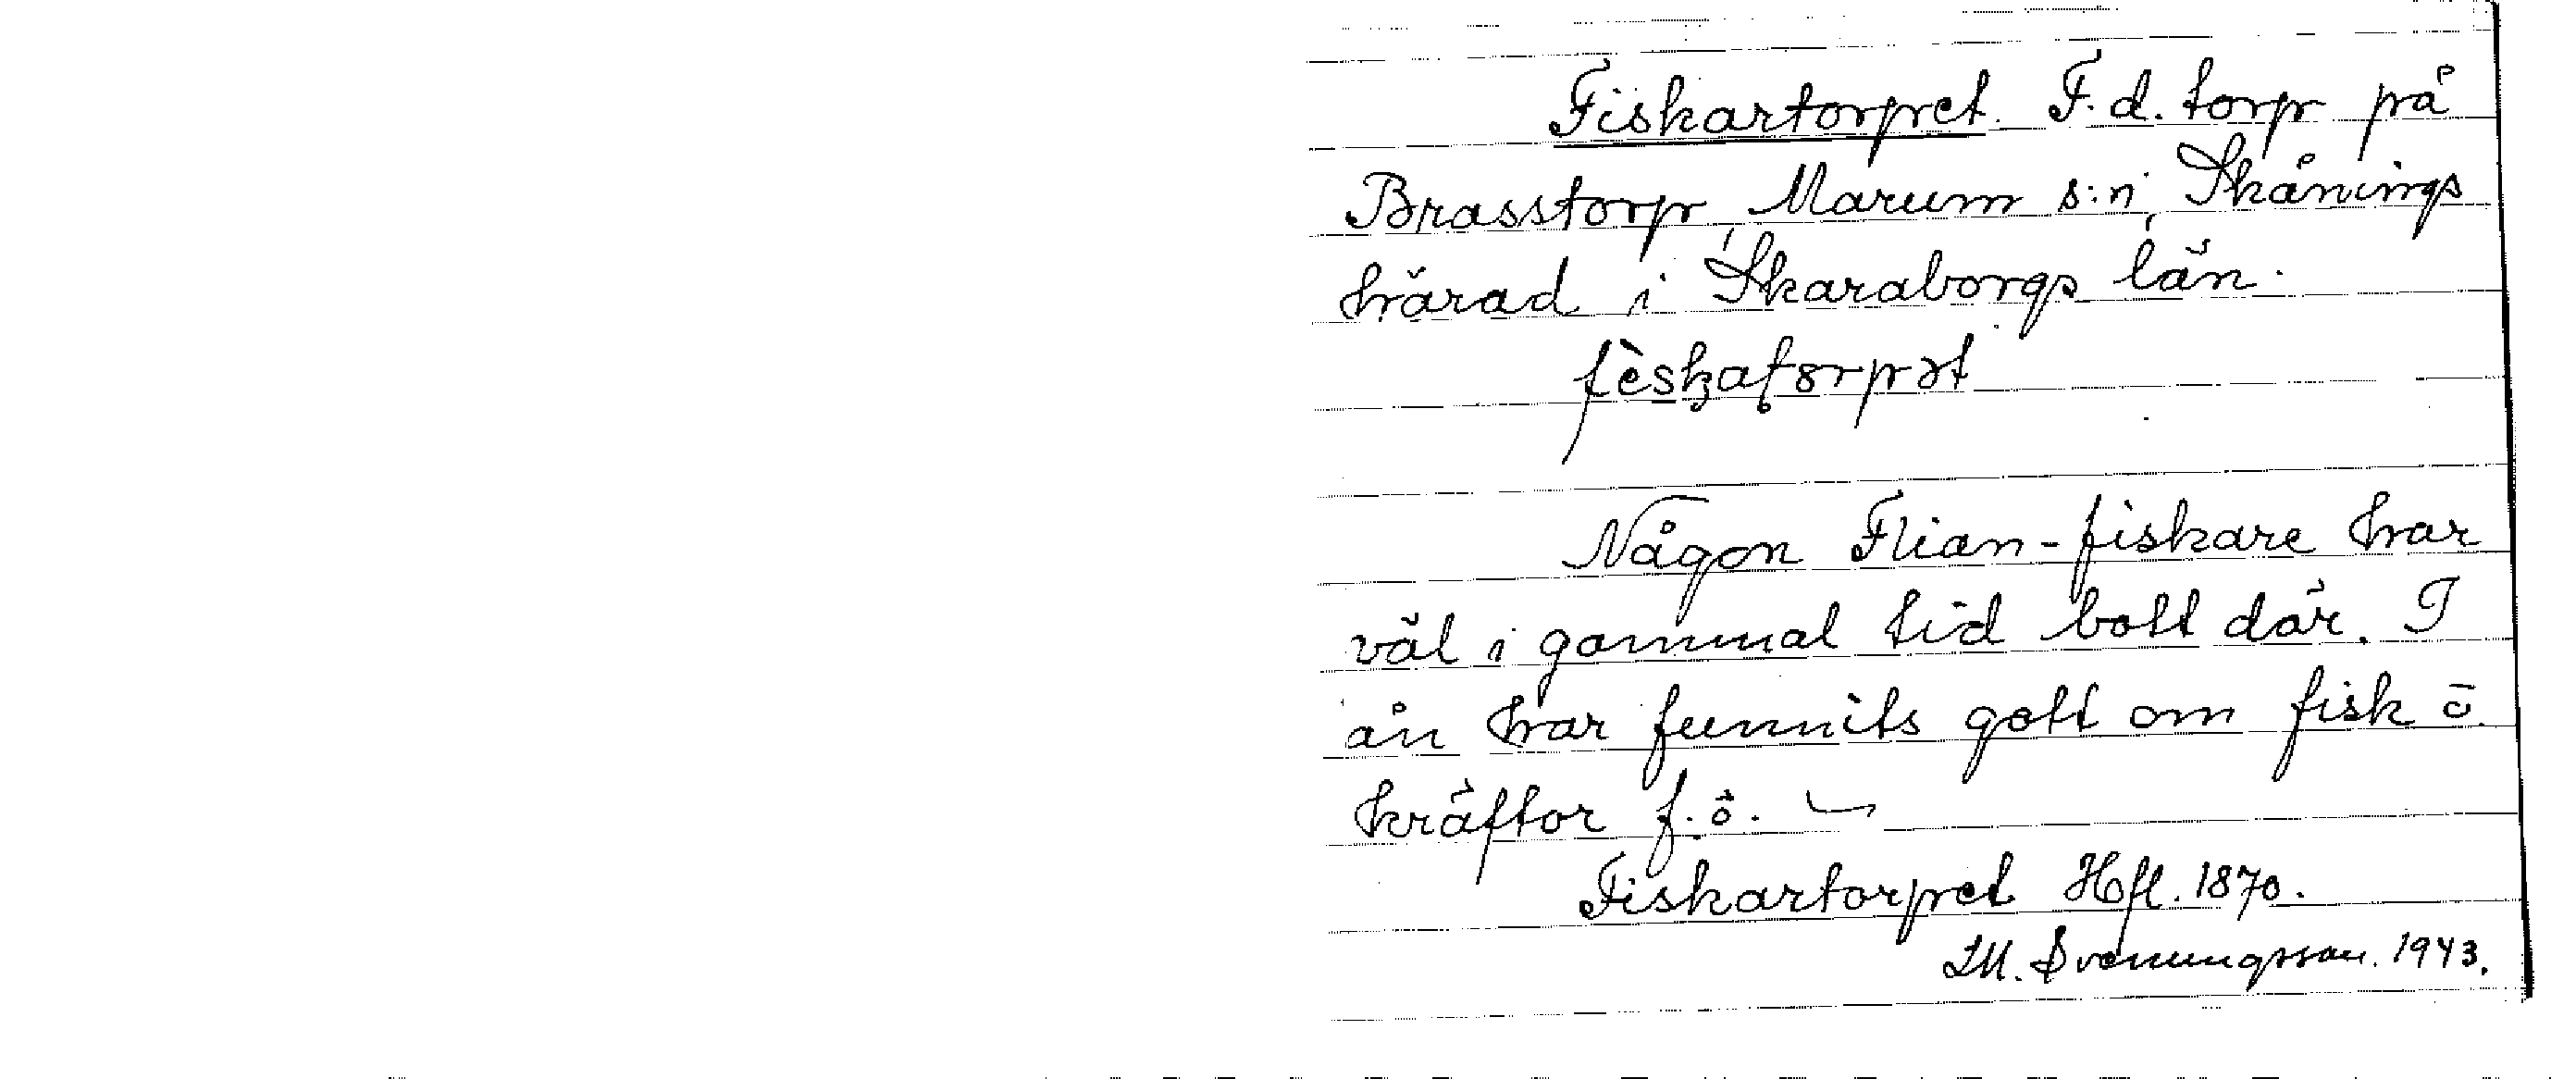 Fiskartorpet. F.d. torp på
Brasstorp, Marum s:n, Skånings
härad i Skaraborgs län.
Någon Flian-fiskare har
väl i gammal tid bott där. I
ån har funnits gott om fisk o.
kräftor f.ö.
Fiskartorpet Hfl. 1870.
I.M. Svenungsson. 1943.